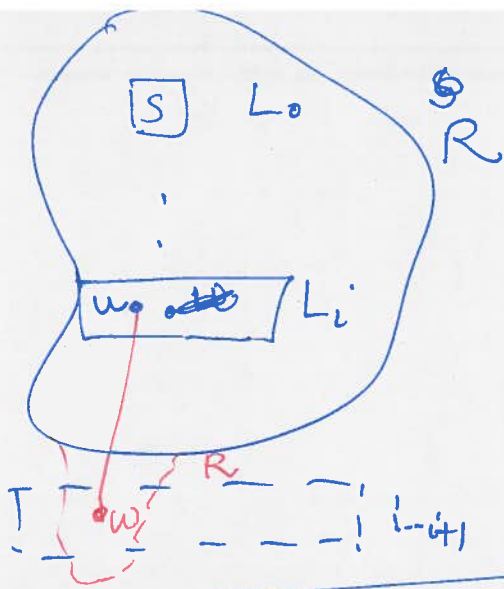 S L₀
R
u Lᵢ
R
w Lᵢ₊₁